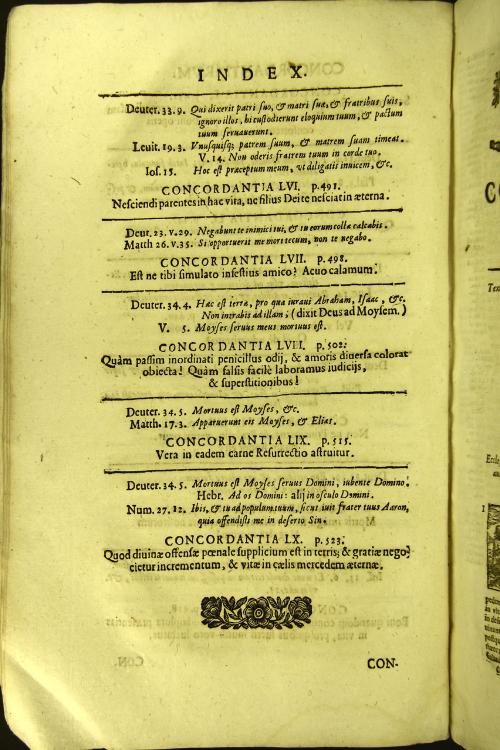 INDEX.
Deuter. 33. 9. Qui dixerit patri suo, & matri suæ, & fratribus suis,
ignoro illos, hi custodierunt eloquium tuum, & pactum
tuum seruauerunt.
Leuit. 19. 3. Vnusquisq; patrem suum, & matrem suam timeat.
V. 14. Non oderis fratrem tuum in corde tuo.
Ios. 15. Hoc est præceptum meum, vt diligatis inuicem, &c.
CONCORDANTIA LVI. p. 491.
Nesciendi parentes in hac vita, ne filius Dei te nesciat in æterna.
Deut. 23. v. 29. Negabunt te inimici tui, & tu eorum colla calcabis.
Matth 26. v. 35. Si oportuerit me mori tecum, non te negabo.
CONCORDANTIA LVII. p. 498.
Est ne tibi simulato infestius amico? Acuo calamum.
Deuter. 34. 4. Hæc est terra, pro qua iuraui Abraham, Isaac, &c.
Non intrabis ad illam; (dixit Deus ad Moysem.)
V. 5. Moyses seruus meus mortuus est.
CONCORDANTIA LVII. p. 502.
Quàm passim inordinati penicillus odij, & amoris diuersa colorat
obiecta! Quàm falsis facilè laboramus iudicijs,
& superstitionibus!
Deuter. 34. 5. Mortuus est Moyses, &c.
Matth. 17. 3. Apparuerunt eis Moyses, & Elias.
CONCORDANTIA LIX. p. 515.
Vera in eadem carne Resurrectio astruitur.
Deuter. 34. 5. Mortuus est Moyses seruus Domini, iubente Domino.
Hebr. Ad os Domini: alij in osculo Domini.
Num. 27. 12. Ibis, & tu ad populum tuum, sicut iuit frater tuus Aaron,
quia offendistis me in deserto Sin.
CONCORDANTIA LX. p. 523.
Quod diuinæ offensæ pœnale supplicium est in terris; & gratiæ nego-
cietur incrementum, & vitæ in cælis mercedem æternæ.
CON-